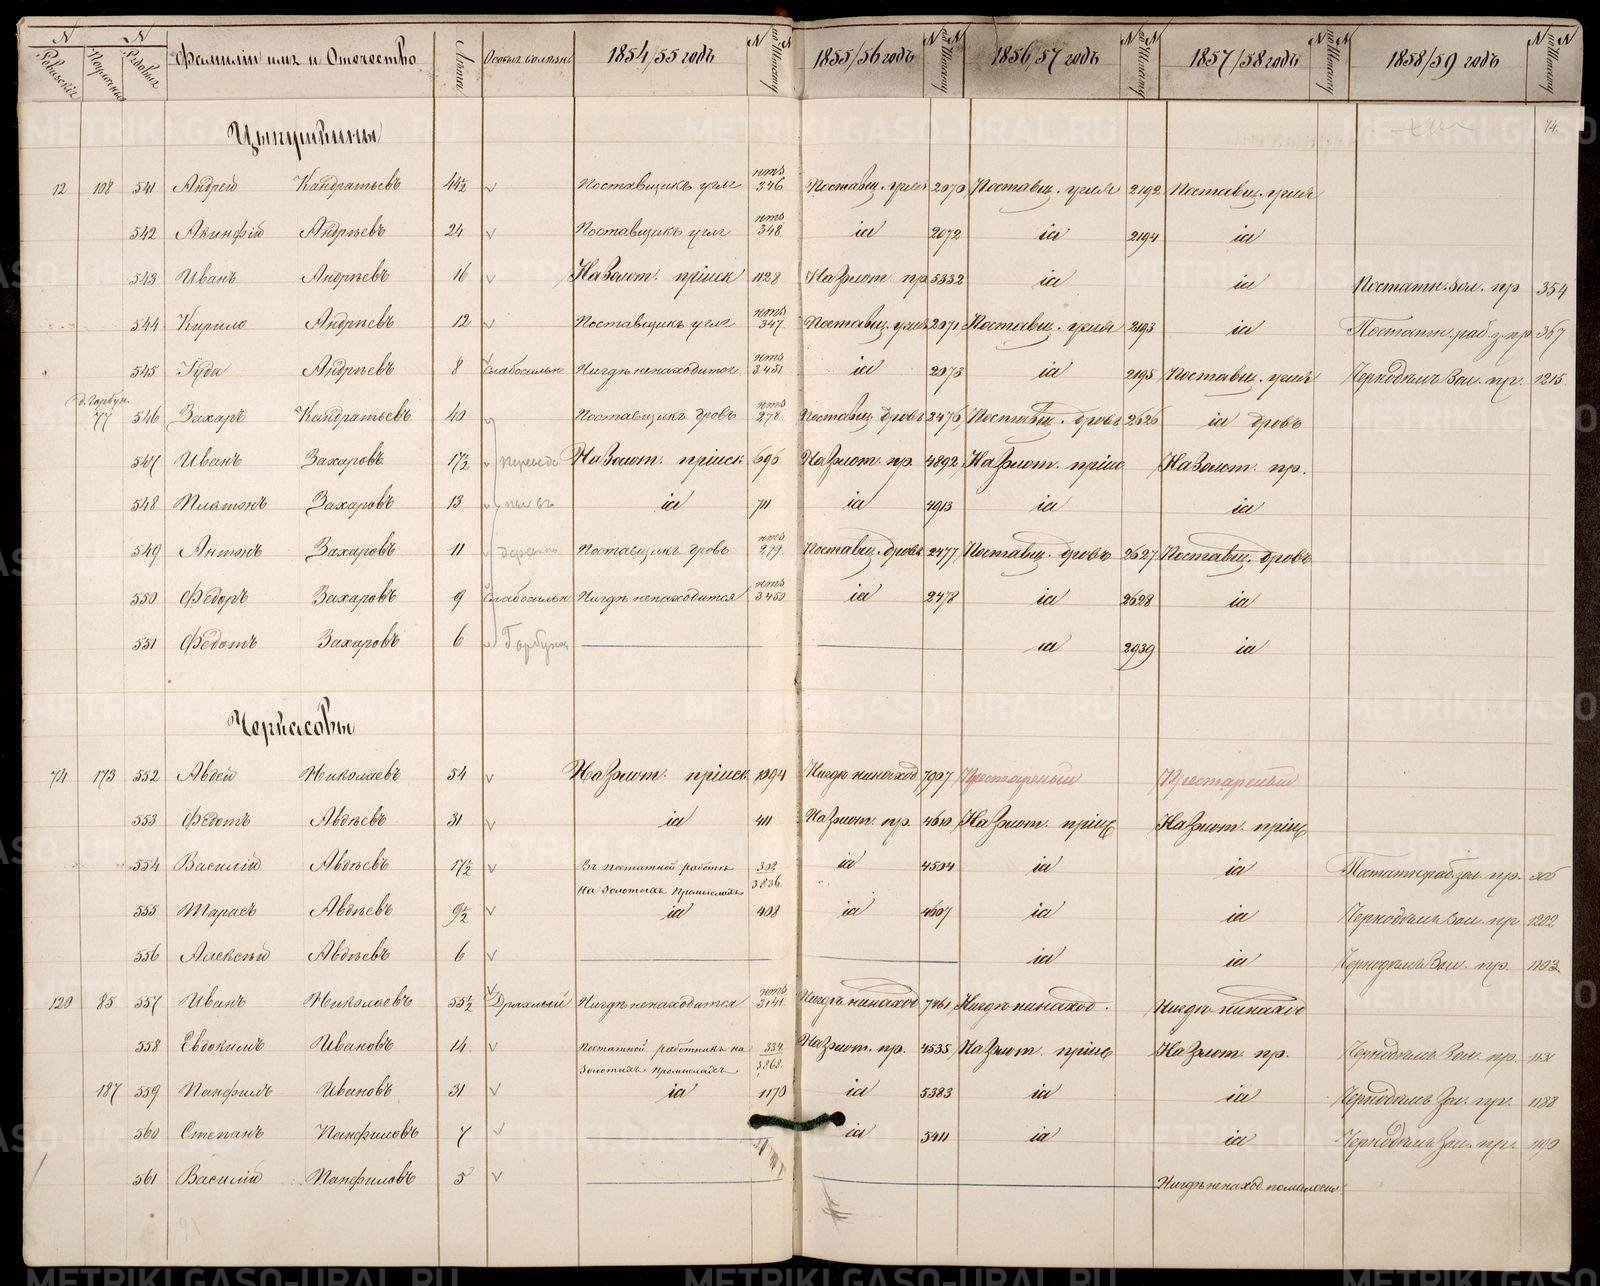 N N Фамиліи имя и Отчество Лѣта 1854/55 годъ N N 1855/56 годъ N N 1856/57 годъ N N 1857/58 годъ N N 1858/59 годъ N N
74.
Цыпушкины
12 108 541 Андрей Кандратьевъ 44½ Поставщикъ угля 346 Поставщ. угля 2070 Поставщ. угля 2192 Поставщ. угля
542 Акинфій Андрѣевъ 24 Поставщикъ угля 348 іа 2072 іа 2194 іа
543 Иванъ Андрѣевъ 16 На Золот. пріиск 1128 На Золот. пр. 5332 іа іа Постатн. Зол. пр. 354
544 Кирило Андрѣевъ 12 Поставщикъ угля 347 Поставщ. угля 2071 Поставщ. угля 2193 іа 367
545 Іуда Андрѣевъ 8 Слабосильн Нигдѣ ненаходится 3451 іа 2073 іа 2195 Поставщ. угля Чернодѣлъ Зол. пр. 1215
д. Горбун.
77 546 Захаръ Кандратьевъ 40 Поставщикъ дровъ 278 Поставщ. дровъ 2476 Поставщ. дровъ 2626 іа дровъ
547 Иванъ Захаровъ 17½ На Золот. пріиск 696 На Золот. пр. 4892 На Золот. пріис На Золот. пр.
548 Платонъ Захаровъ 13 іа 711 іа 4913 іа іа
549 Антонъ Захаровъ 11 Поставщикъ дровъ 279 Поставщ. дровъ 2477 Поставщ. дровъ 2627 Поставщ. дровъ
550 Федоръ Захаровъ 9 Слабосильн Нигдѣ ненаходится 3450 іа 2478 іа 2628 іа
551 Федотъ Захаровъ 6 іа 2939 іа
Черкасовы
74 173 552 Авдей Николаевъ 54 На Золот. пріиск 1094 Нигдѣ ненаход 7907 Престарелый Престарелый
553 Федотъ Авдѣевъ 31 іа 411 На Золот. пр. 4610 На Золот. пріис На Золот. пріис
554 Василій Авдѣевъ 17½ Въ постатной работѣ 302 іа 4504 іа іа
на Золотыхъ Промыслахъ 3836
555 Тарасъ Авдѣевъ 9½ іа 408 іа 4607 іа іа Чернодѣлъ Зол. пр. 1202
556 Алексѣй Авдѣевъ 6 іа іа Чернодѣлъ Зол. пр. 1103
120 85 557 Иванъ Николаевъ 55½ Дряхлый Нигдѣ ненаходится 3141 Нигдѣ ненаход 7461 Нигдѣ ненаход. Нигдѣ ненаход
558 Евдокимъ Ивановъ 14 Постатной работникъ на 334 На Золот. пр. 4535 На Золот. пріис На Золот. пр. Чернодѣлъ Зол. пр. 1131
Золотыхъ Промыслахъ 3868
187 559 Панфилъ Ивановъ 31 іа 1170 іа 5383 іа іа Чернодѣлъ Зол. пр. 1188
560 Степанъ Панфиловъ 7 іа 5411 іа іа Чернодѣлъ Зол. пр. 1190
561 Василій Панфиловъ 5 Нигдѣ ненаход
METRIKI.GASO-URAL.RU